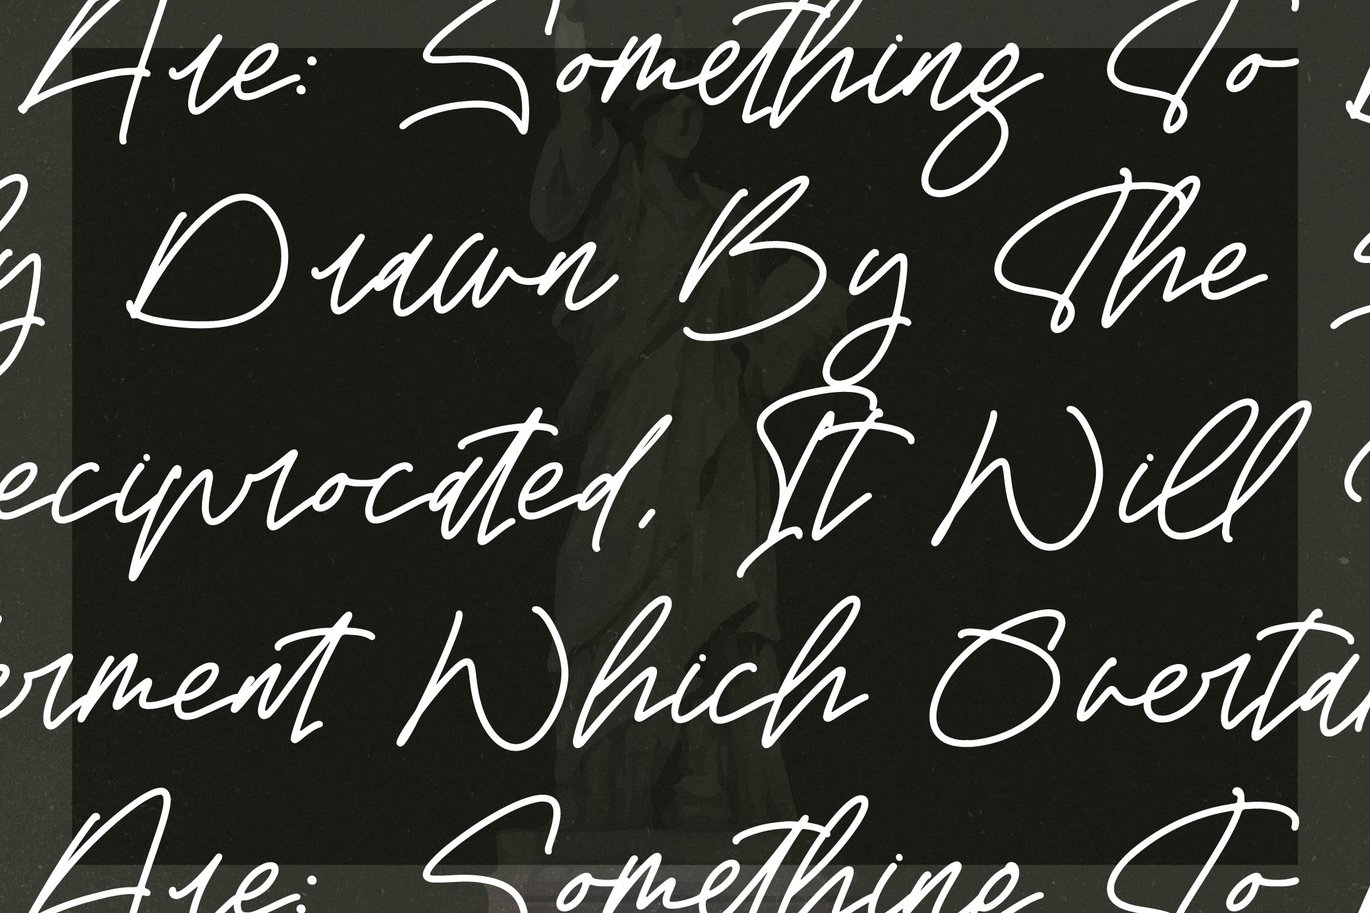 Are: Something To
By Drawn By The
eciprocated, It Will
erment Which Overta
Are: Something To